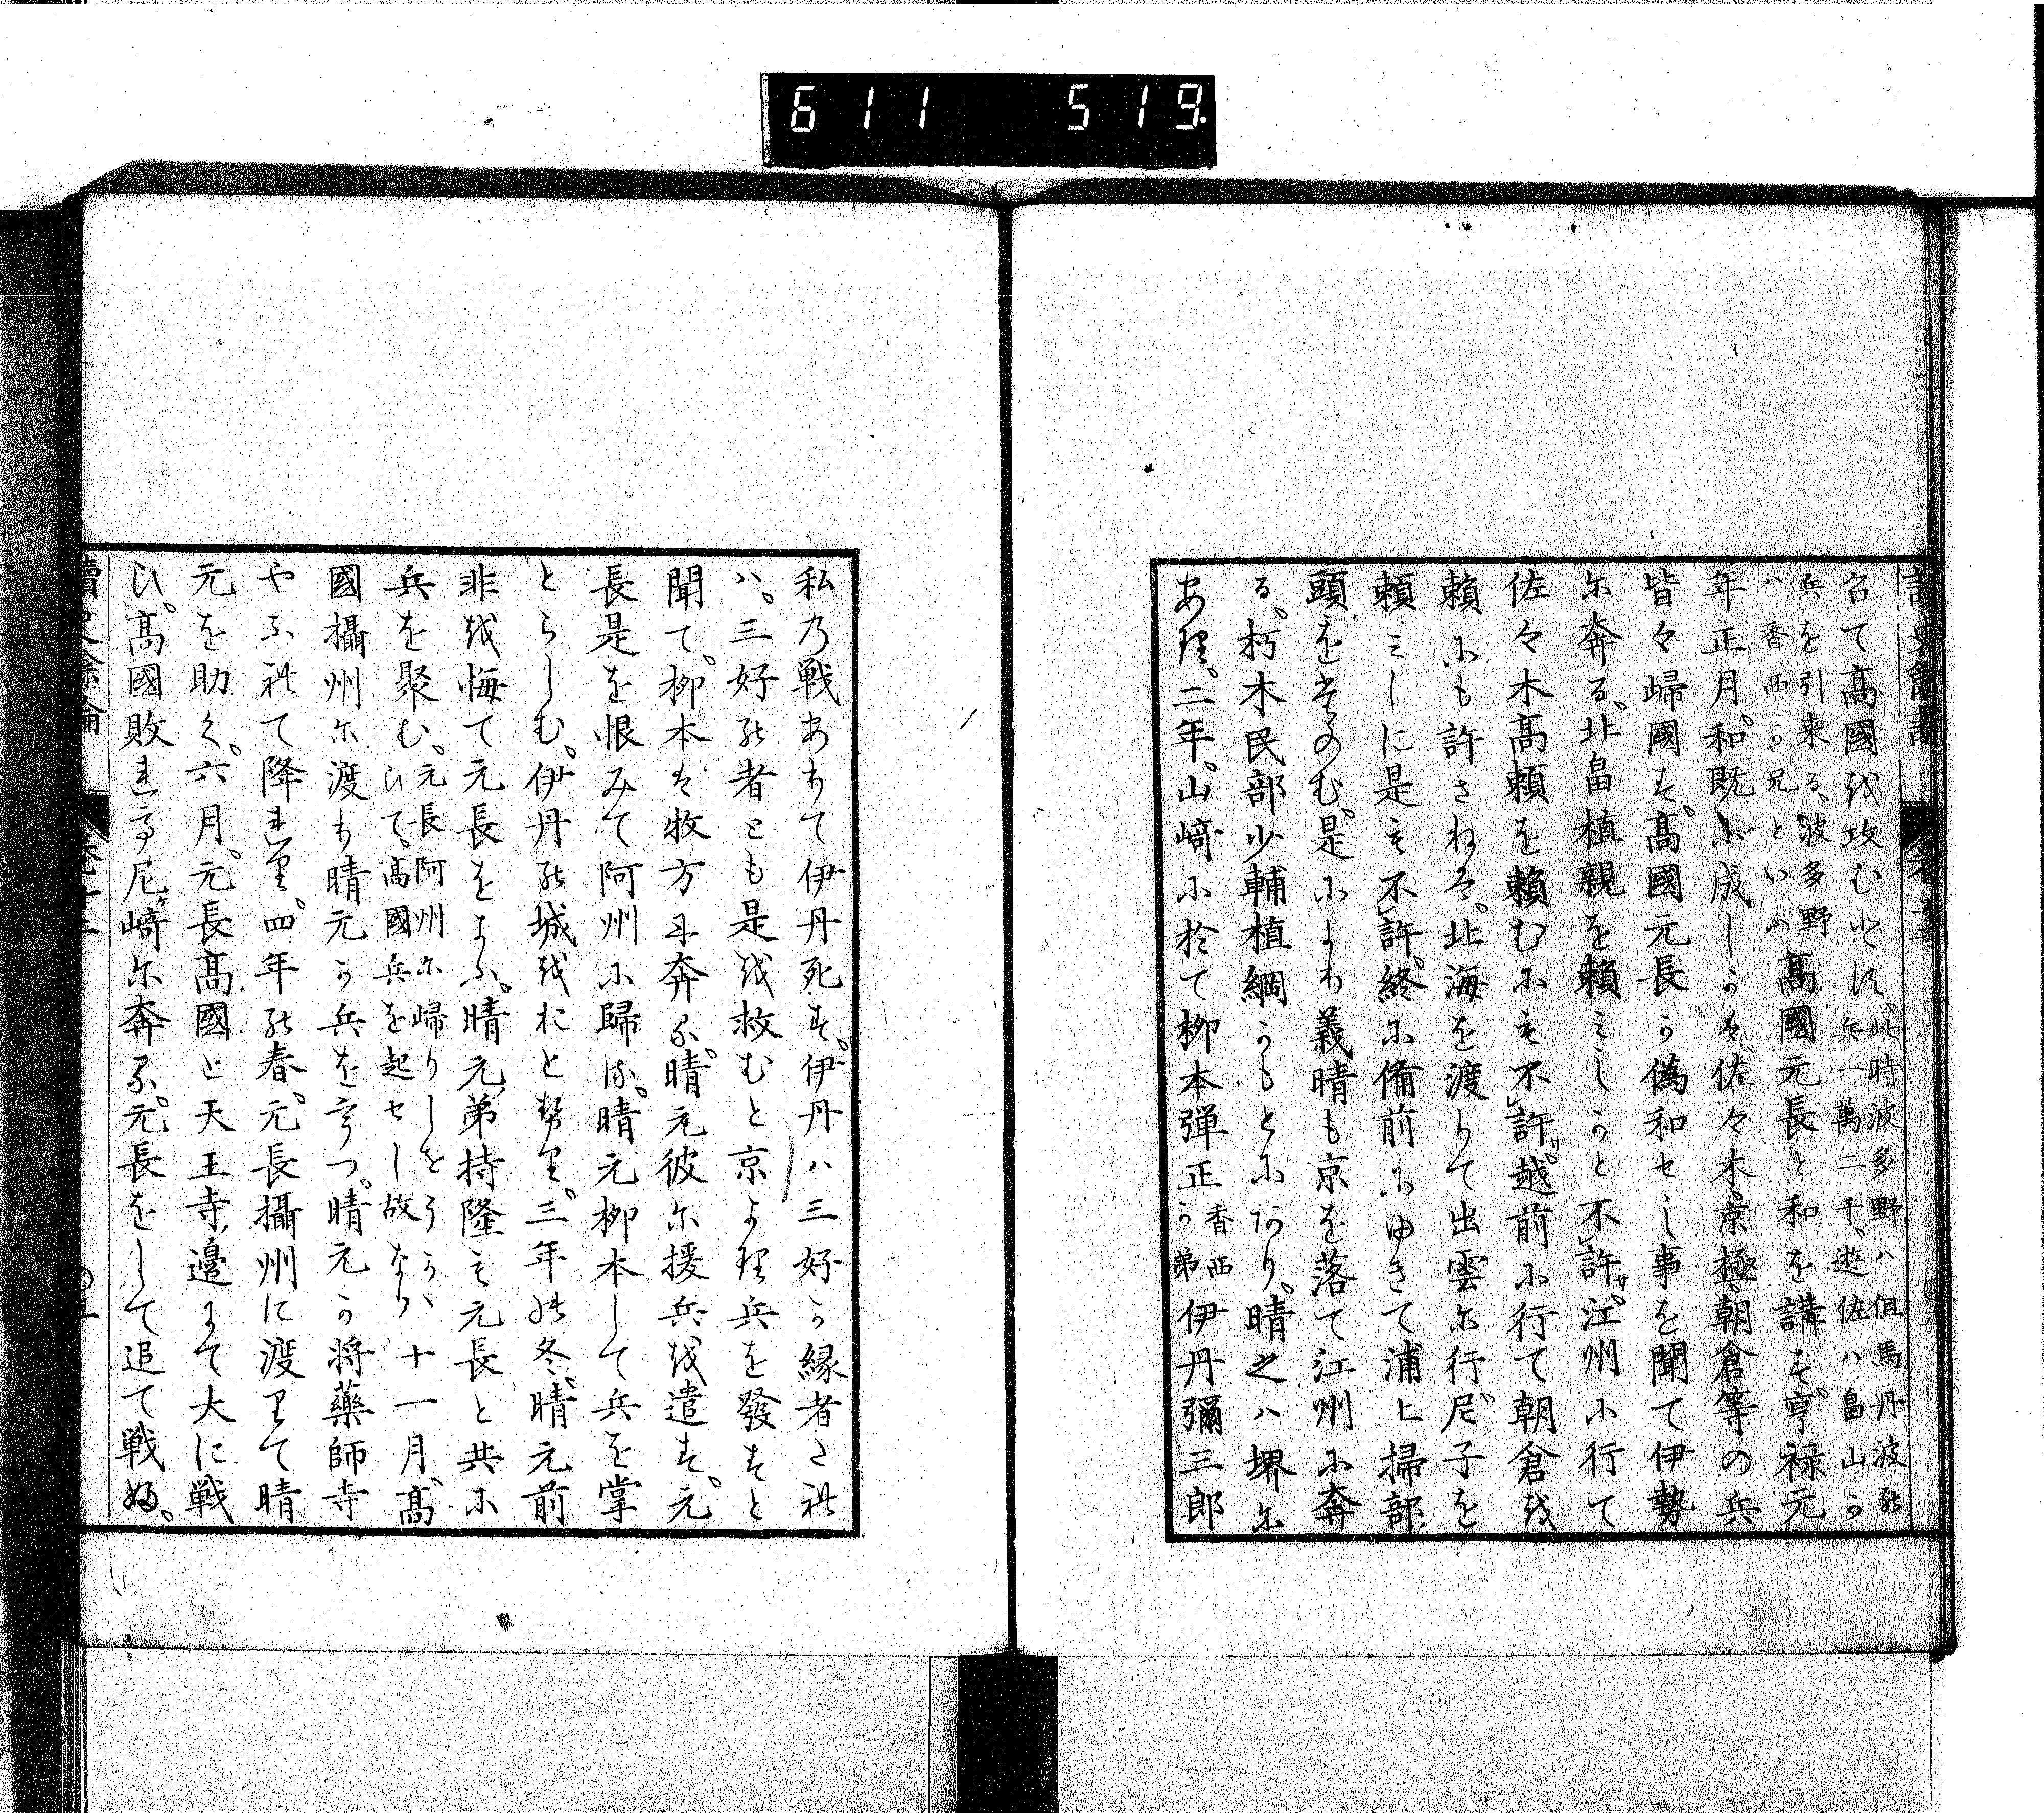 611 519
召て高國を攻むとす。此時波多野ハ但馬丹波の
兵一萬二千。遊佐ハ畠山か
兵を引来る、波多野
ハ香西か兄といふ
高國元長と和を講す。亨禄元
年正月。和既に成しかは、佐々木、京極、朝倉等の兵
皆々歸國す。高國元長か偽和せし事を聞て伊勢
に奔る。北畠植親を頼みしかと不許。江州に行て
佐々木高頼を頼むにも不許。越前に行て朝倉を
頼にも許さねは、北海を渡りて出雲に行尼子を
頼みしに是も不許。終に備前にゆきて浦上掃部
頭をたのむ。是により義晴も京を落て江州に奔
る。朽木民部少輔植綱かもとにあり。晴之ハ堺に
あり。二年。山﨑に於て柳本弾正香西か弟伊丹彌三郎
私乃戦ありて伊丹死す。伊丹ハ三好か縁者たれ
ハ。三好の者とも是を救むと京より兵を發すと
聞て。柳本は牧方に奔る。晴元彼に援兵を遣す。元
長是を恨みて阿州に歸る。晴元柳本して兵を掌
とらしむ。伊丹の城をおとせり。三年の冬。晴元前
非を悔て元長をよふ。晴元弟持隆も元長と共に
兵を聚む。元長阿州に歸りしをうかゝ
ひて。高國兵を起せし故なり
十一月。高
國攝州に渡り晴元か兵を寺つ。晴元か将藥師寺
やふれて降れり。四年の春。元長攝州に渡りて晴
元を助く。六月。元長高國と天王寺邊にて大に戦
ひ。高國敗れて尼ヶ﨑に奔る。元長をして追て戦ぬ。
讀史餘論